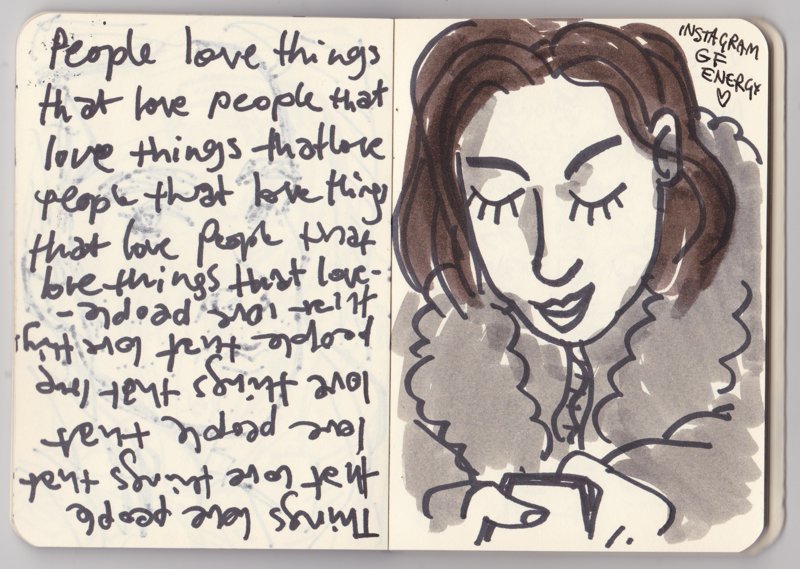 People love things
that love people that
love things that love
people that love things
that love people that
love things that love-
Things love people
that love things that
love people that
love things that love
people that love things
that love people-
INSTAGRAM
GF
ENERGY
♡